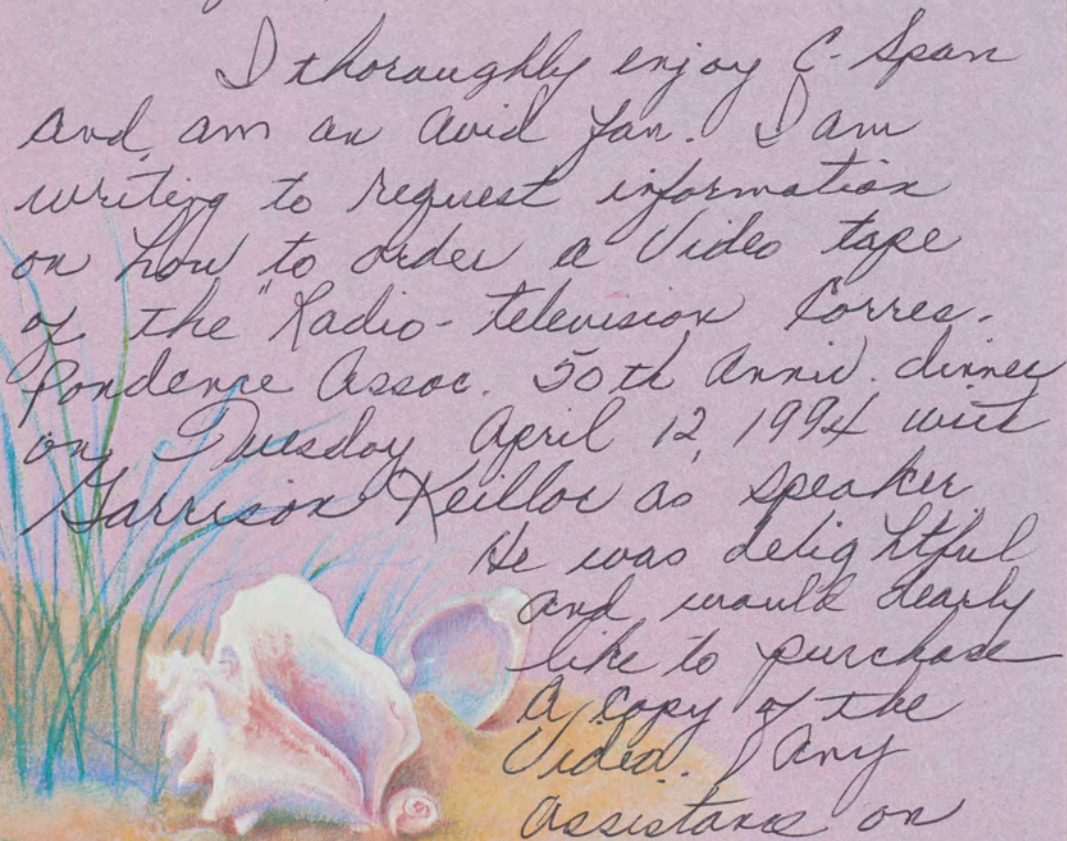 I thoroughly enjoy C-Span
and am an avid fan. I am
writing to request information
on how to order a Video tape
of the "Radio-television Corres-
pondence Assoc. 50th Anniv. dinner
on Tuesday April 12, 1994 with
Garrison Keillor as speaker
He was delightful
and would dearly
like to purchase
a copy of the
Video. Any
assistance on